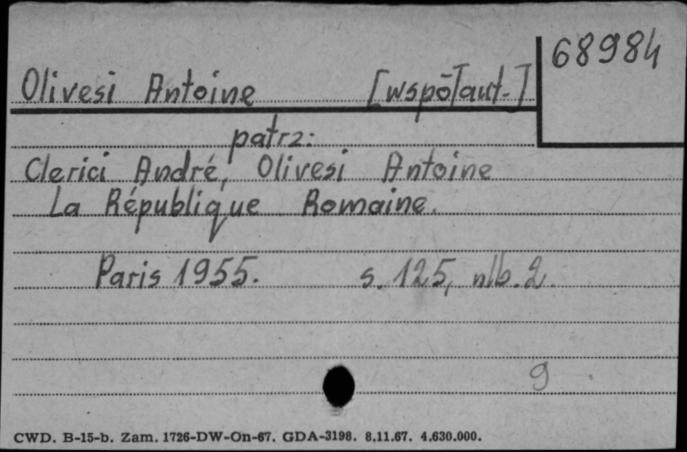 68984
Olivesi Antoine [współaut.]
patrz:
Clerici André, Olivesi Antoine
La République Romaine.
Paris 1955. s. 125, nlb. 2.
9
CWD. B-15-b. Zam. 1726-DW-On-67. GDA-3198. 8.11.67. 4.630.000.